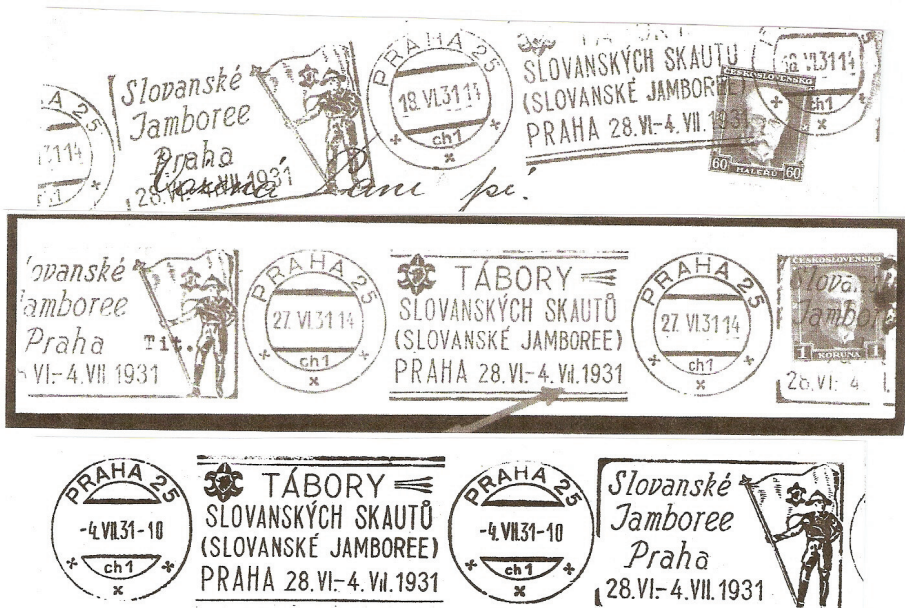 PRAHA 25
18.VI.31 14
ch1
Slovanské
Jamboree
Praha
28.VI.-4.VII.1931
PRAHA 25
18.VI.31 14
ch1
SLOVANSKÝCH SKAUTŮ
(SLOVANSKÉ JAMBOREE)
PRAHA 28.VI.-4.VII.1931
18.VI.31 14
ch1
ČESKOSLOVENSKO
60 HALÉŘŮ 60
pí.
ovanské
amboree
Praha
VI.-4.VII 1931
Tit.
PRAHA 25
27.VI.31 14
ch1
TÁBORY
SLOVANSKÝCH SKAUTŮ
(SLOVANSKÉ JAMBOREE)
PRAHA 28.VI.-4.VII.1931
PRAHA 25
27.VI.31 14
ch1
ČESKOSLOVENSKO
Slovans
Jambor
1 KORUNA 1
28.VI. 4
PRAHA 25
-4.VII.31-10
ch1
TÁBORY
SLOVANSKÝCH SKAUTŮ
(SLOVANSKÉ JAMBOREE)
PRAHA 28.VI.-4.VII.1931
PRAHA 25
-4.VII.31-10
ch1
Slovanské
Jamboree
Praha
28.VI.-4.VII.1931